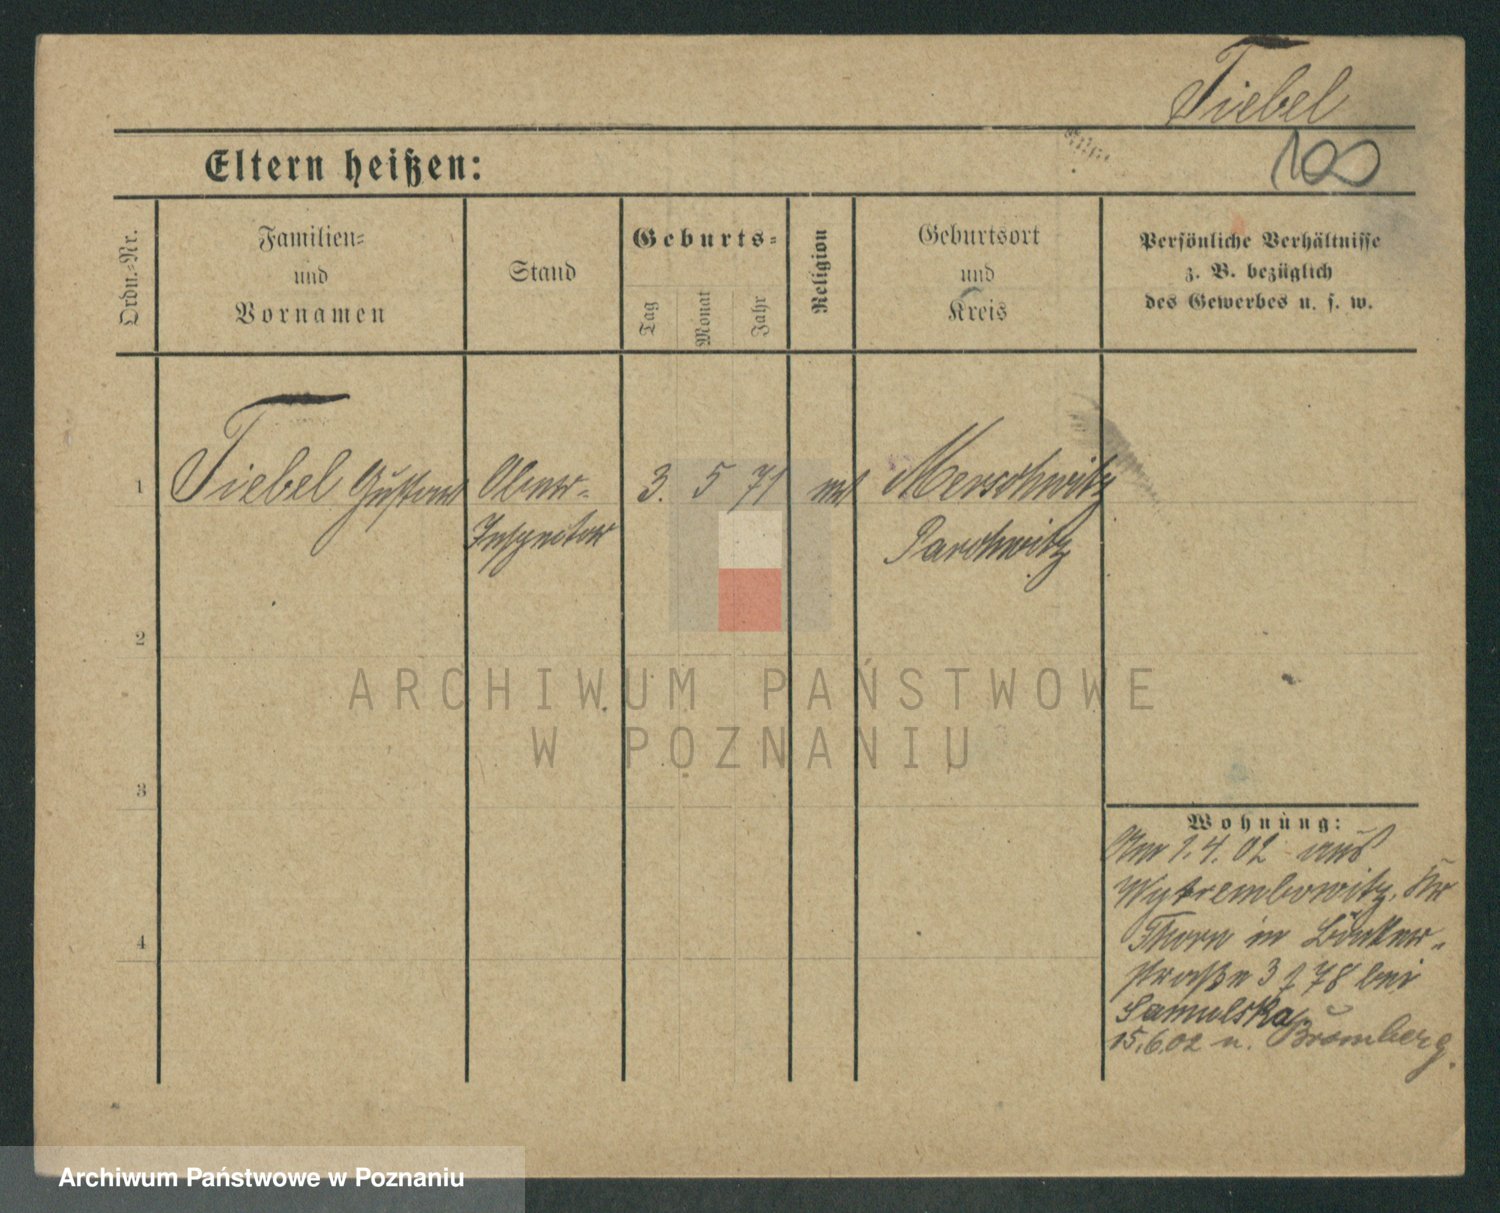 Tiebel
Eltern heißen:
100
Ordn.-Nr.
Familien-
und
Vornamen
Stand
Geburts-
Tag
Monat
Jahr
Religion
Geburtsort
und
Kreis
Persönliche Verhältnisse
z. B. bezüglich
des Gewerbes u. s. w.
1
Tiebel Gustav
Ober-
Inspector
3. 5 71
Merschwitz
Parchwitz
2
3
4
Wohnung:
Am 1.4.02 aus
Wytrembowitz. Kr
Thorn in
straße 3 I 78 bei
Samulska
15.6.02 n. Bromberg.
ARCHIWUM PAŃSTWOWE
W POZNANIU
Archiwum Państwowe w Poznaniu